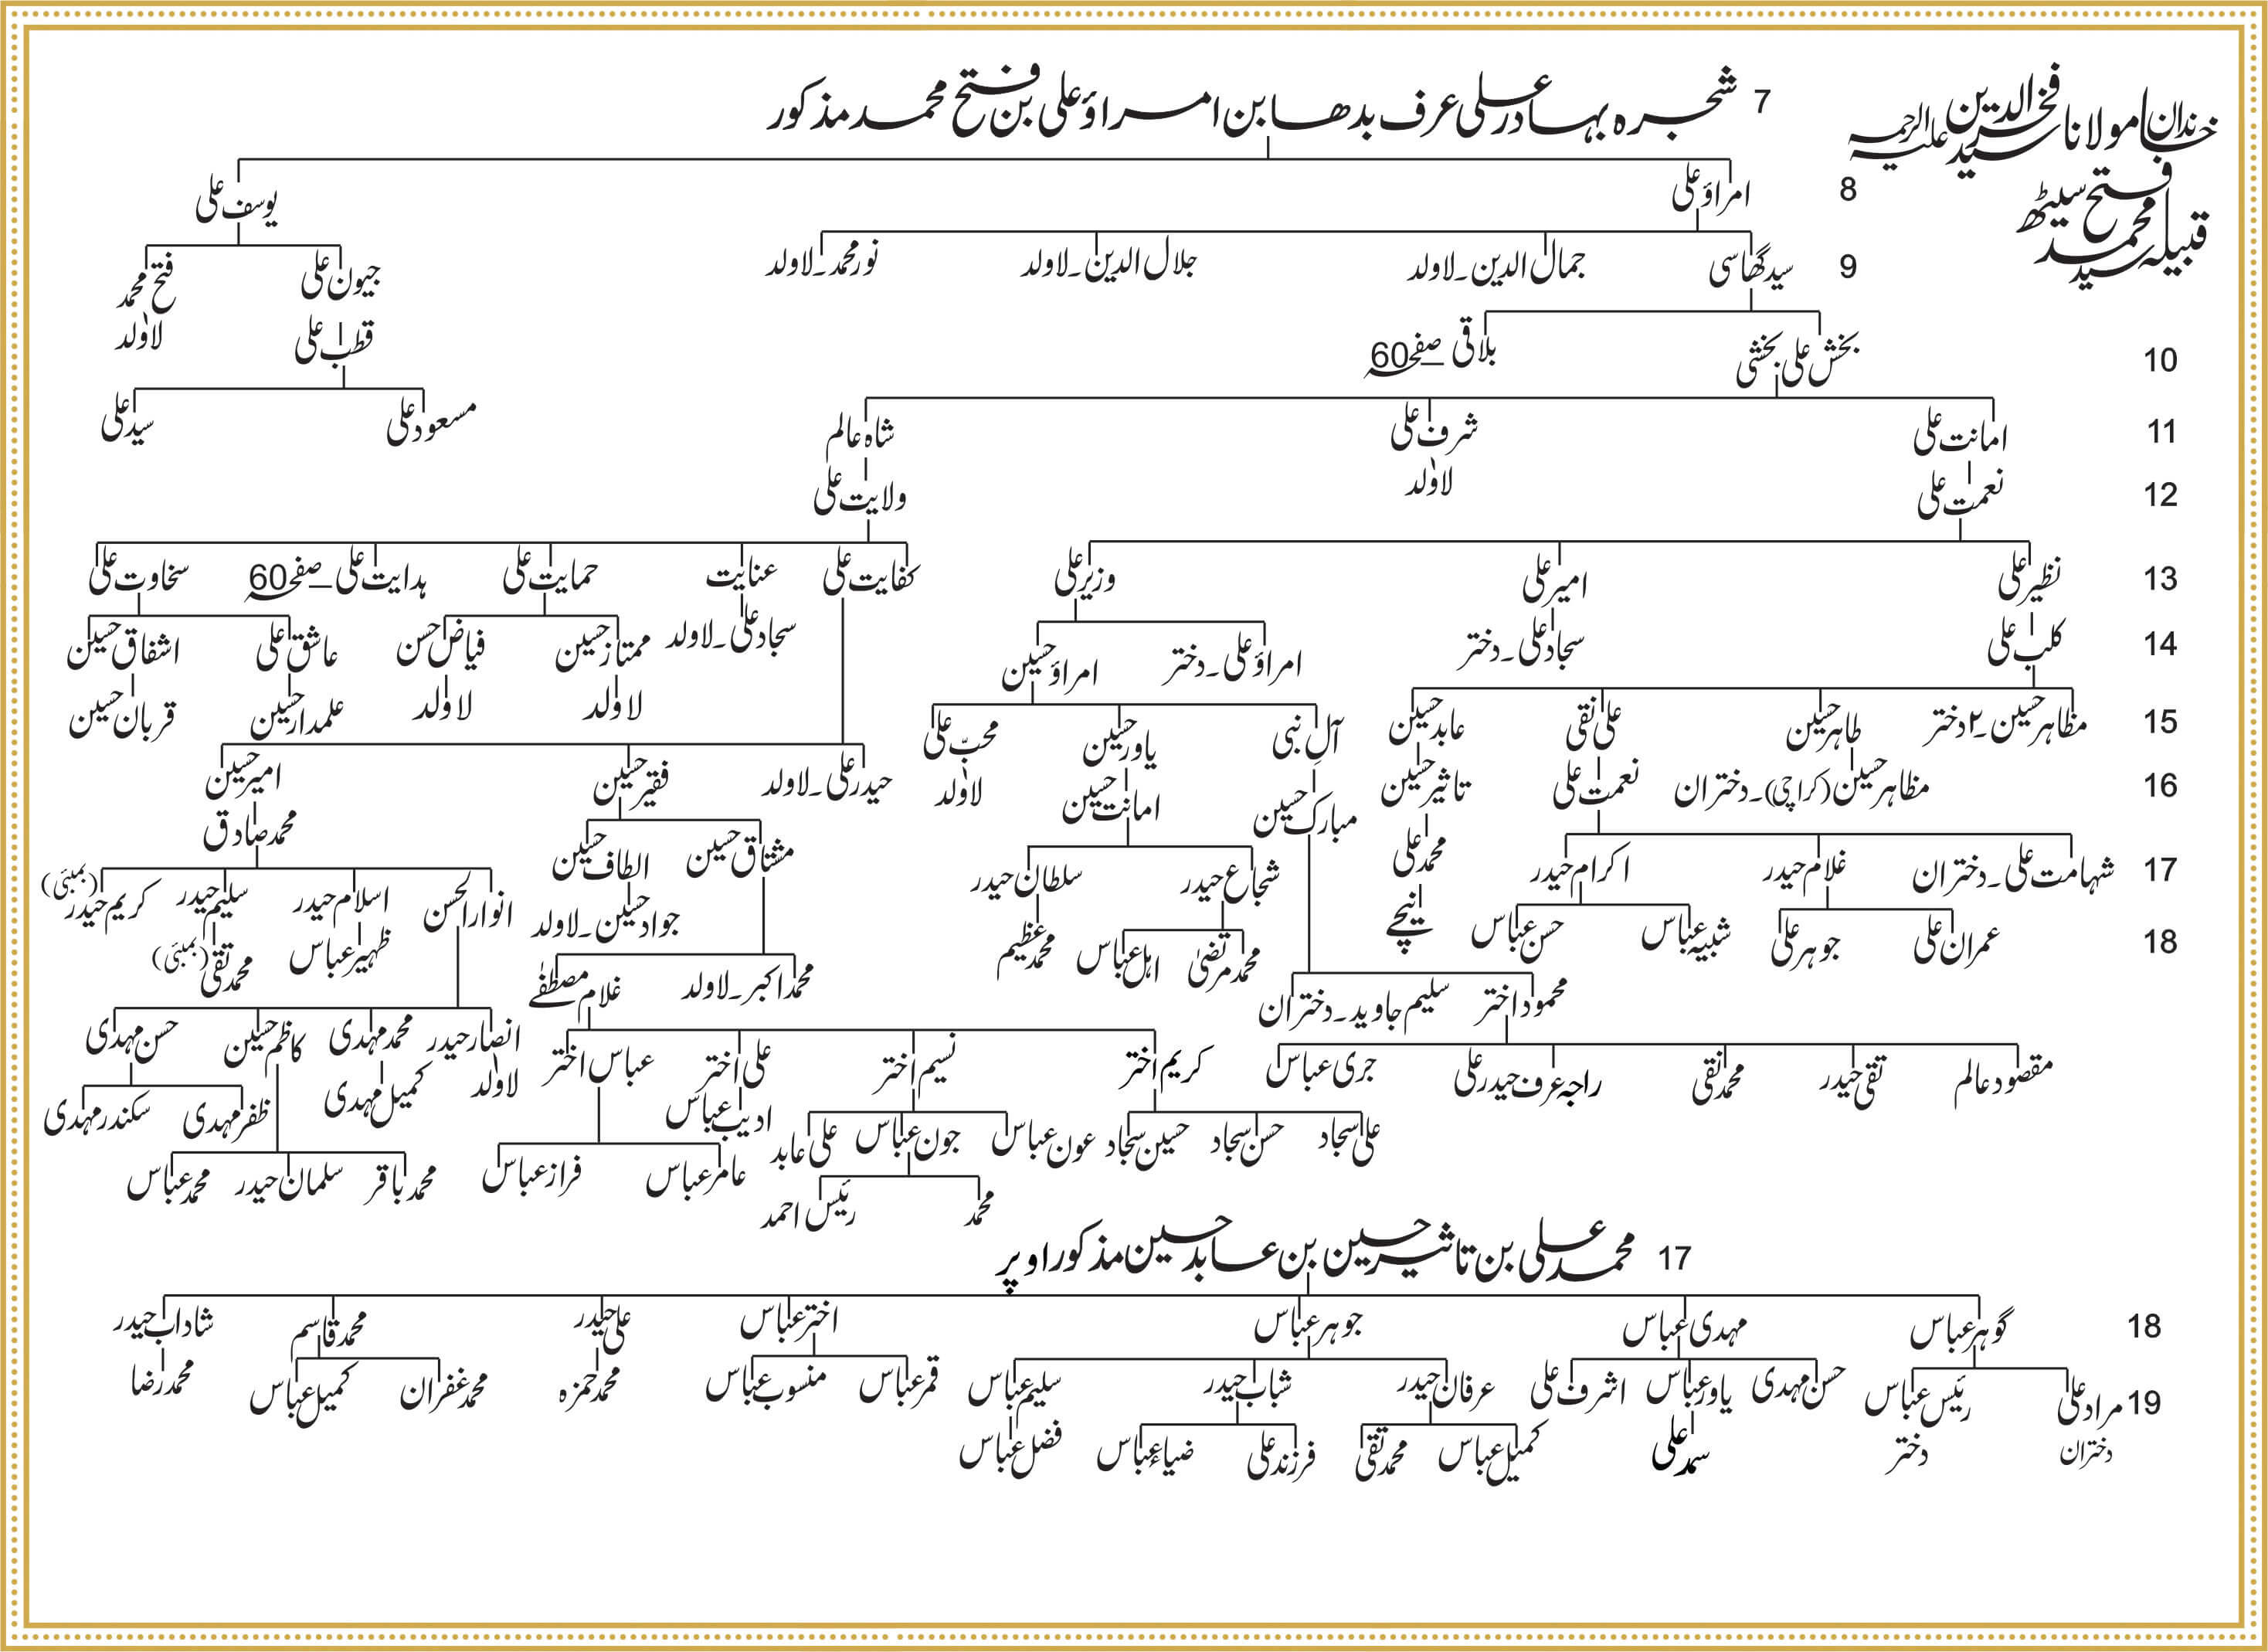 خاندان مولانا سید فخرالدین علیہ الرحمہ
قبیلہ سید فتح محمد سیٹھ
7 شجرہ بہادر علی عرف بدھا بن امراؤ علی بن فتح محمد مذکور
8 امراؤ علی یوسف علی
9 سید گھاسی جمال الدین۔لاولد جلال الدین۔لاولد نور محمد۔لاولد جیون علی فتح محمد
لاولد
10 بخش علی بخشی بلاقی صفحہ 60 قطب علی
11 امانت علی شرف علی شاہ عالم مسعود علی سید علی
لاولد
12 نعمت علی ولایت علی
13 نظیر علی امیر علی وزیر علی کفایت علی عنایت حمایت علی ہدایت علی صفحہ 60 سخاوت علی
14 کلب علی سجاد علی۔دختر امراؤ علی۔دختر امراؤ حسین سجاد علی۔لاولد ممتاز حسین فیاض حسن عاشق علی اشفاق حسین
لاولد لاولد علمدار حسین قربان حسین
15 مظاہر حسین۔۲ دختر طاہر حسین علی نقی عابد حسین آل نبی یاور حسین محبّ علی
لاولد
16 مظاہر حسین (کراچی)۔دختران نعمت علی تاثیر حسین مبارک حسین امانت حسین حیدر علی۔لاولد فقیر حسین امیر حسین
محمد صادق
17 شہامت علی۔دختران غلام حیدر اکرام حیدر محمد علی شجاع حیدر سلطان حیدر مشتاق حسین الطاف حسین انوار الحسن اسلام حیدر سلیم حیدر کریم حیدر (بمبئی)
18 عمران علی جوہر علی شبیہ عباس حسن عباس نیچے محمد مرتضیٰ اہل عباس محمد عظیم جواد حسین۔لاولد ظہیر عباس محمد تقی (بمبئی)
محمود اختر سلیم جاوید۔دختران محمد اکبر۔لاولد غلام مصطفٰے
مقصود عالم تقی حیدر محمد نقی راجہ عرف حیدر علی جری عباس کریم اختر نسیم اختر علی اختر عباس اختر انصار حیدر محمد مہدی کاظم حسین حسن مہدی
لاولد کمیل مہدی
علی سجاد حسن سجاد حسین سجاد عون عباس جون عباس علی عابد ادیب عباس ظفر مہدی سکندر مہدی
عامر عباس فراز عباس محمد باقر سلمان حیدر محمد عباس
محمد رئیس احمد
17 محمد علی بن تاثیر حسین بن عابد حسین مذکور اوپر
18 گوہر عباس مہدی عباس جوہر عباس اختر عباس علی حیدر محمد قاسم شاداب حیدر
19 مراد علی رئیس عباس حسن مہدی یاور عباس اشرف علی عرفان حیدر شباب حیدر سلیم عباس قمر عباس منسوب عباس محمد حمزہ محمد غفران کمیل عباس محمد رضا
دختران دختر کمیل عباس محمد تقی فرزند علی ضیاء عباس فضل عباس